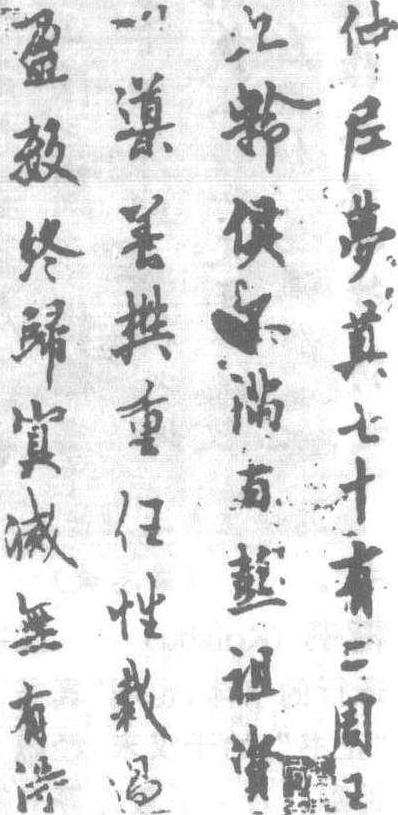 仲尼夢奠七十有二周王
九齡俱不滿百彭祖資
以導養樊重任性裁過
盈數終歸冥滅無有得